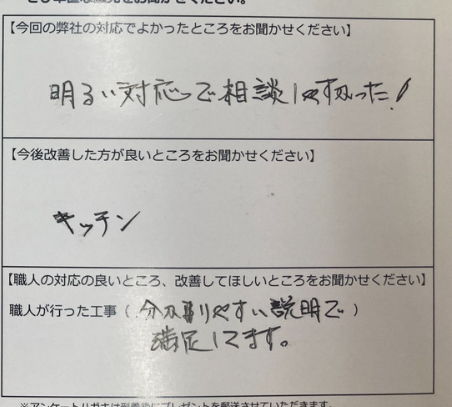 【今回の弊社の対応でよかったところをお聞かせください】
明るい対応で相談しやすかった!
【今後改善した方が良いところをお聞かせください】
キッチン
【職人の対応の良いところ、改善してほしいところをお聞かせください】
職人が行った工事（分かりやすい説明で）
満足してます。
※アンケートハガキは到着後にプレゼントを郵送させていただきます。